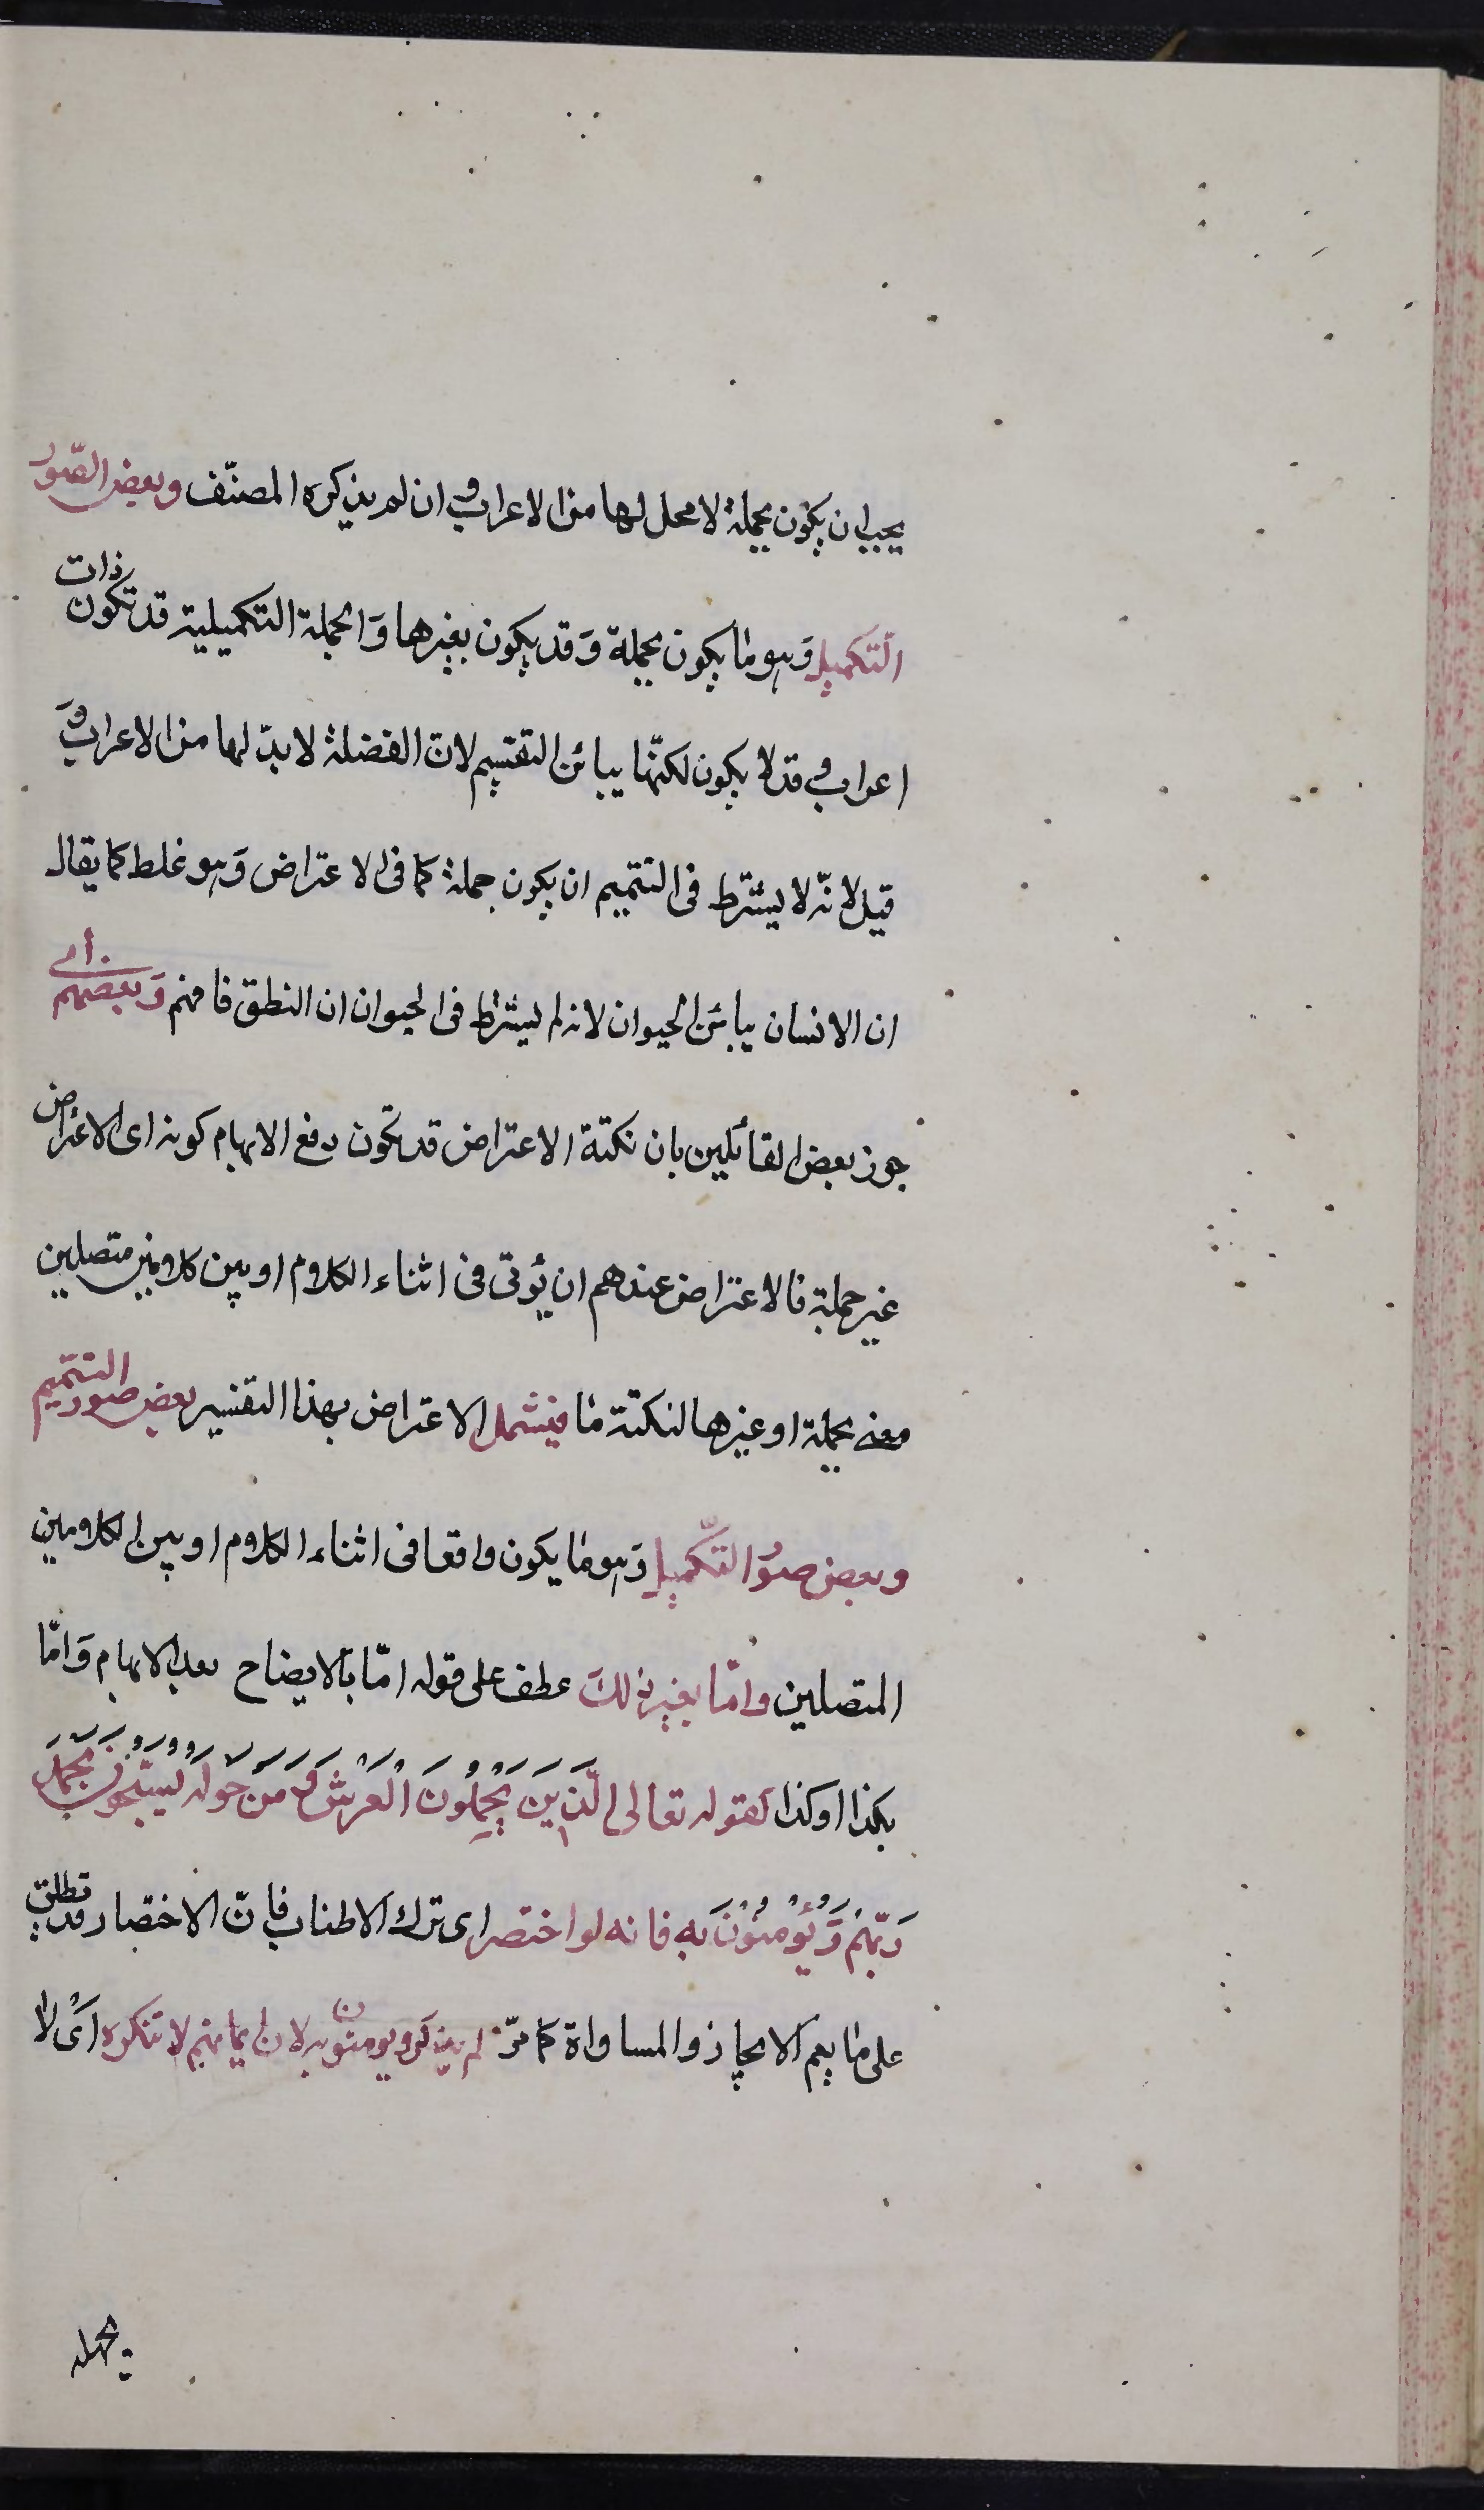 يجب ان يكون بجملة لا محل لها من الاعراب و ان لم يذكره المصنّف وبعض الصّور
التكميل وَهو ما يكون بجملة وَقد يكون بغيرها وَالجملة التكميلية قد تكون ذات
اعراب و قد لا يكون لكنّها يبائن التقسيم لانّ الفضلة لا بدّ لها من الاعراب وَ
قيل لانّه لا يشترط فى التتميم ان يكون جملة كما فى الاعتراض وَهو غلط كما يقال
ان الانسان يبائن الحيوان لانه لم يشترط فى الحيوان ان النطق فافهم وَبعضهم أى
جوز بعض القائلين بان نكتة الاعتراض قد تكون دفع الايهام كونه اى الاعتراض
غير جملة فالاعتراض عندهم ان يؤتى فى اثناء الكلام او بين كلامين متصلين
معنى بجملة او غيرها لنكتة ما فيشمل الاعتراض بهذا التفسير بعض صور التتميم
وبعض صوَر التكّميل وَهو ما يكون واقعا فى اثناء الكلام او بين الكلامين
المتصلين وامّا بغير ذلك عطف على قوله امّا بالايضاح بعد الابهام وَامّا
بكذا او كذا كقوله تعالى الَّذينَ يَحْمِلُونَ الْعَرْشَ وَ مَنْ حَوْلَهُ يُسَبِّحُونَ بِحَمْدِ
رَبّهِمْ وَ يُؤْمِنُوْنَ بِهِ فانه لو اختصر اى ترك الاطناب فانّ الاختصار قد تطلق
على ما يعم الايجاز والمساواة كما مرّ لم يذكر ويومنون به لان ايمانهم لا تنكره اىْ لا
يجهله